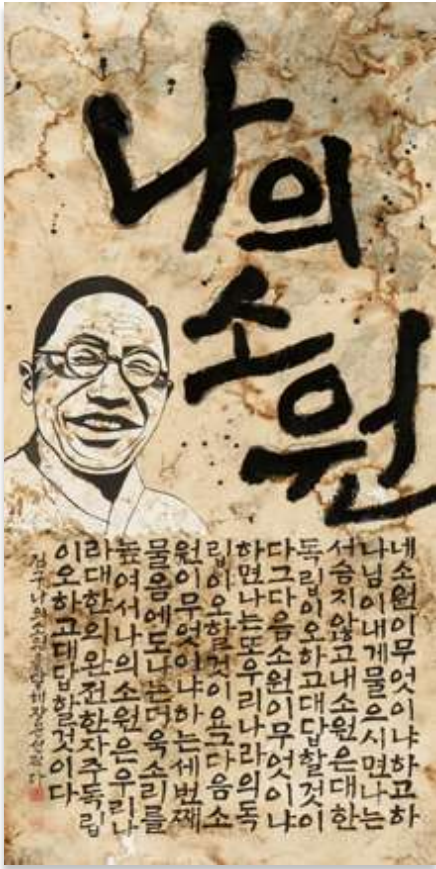 나의
소원
네소원이무엇이냐하고하
나님이내게물으시면나는
서슴지않고내소원은대한
독립이오하고대답할것이
다그다음소원이무엇이냐
하면나는또우리나라의독
립이오할것이요그다음소
원이무엇이냐하는세번째
물음에도나는더욱소리를
높여서나의소원은우리나
라대한의완전한자주독립
이오하고대답할것이다
김구 나의소원